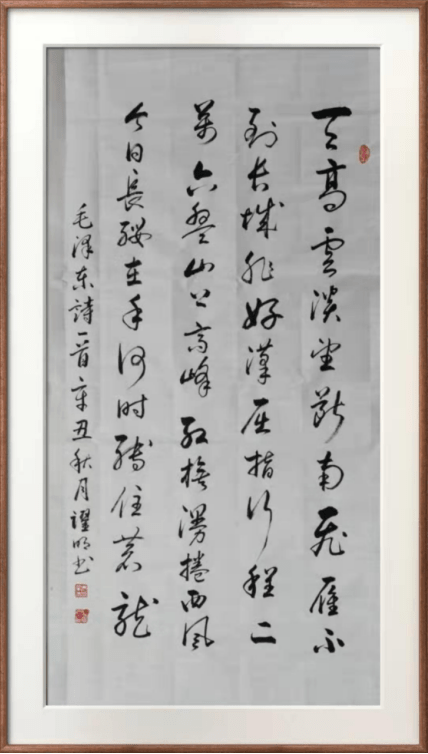 天高雲淡望断南飞雁不
到长城非好漢屈指行程二
萬六盤山上高峰红旗漫捲西風
今日長纓在手何时缚住苍龙
毛泽东詩一首辛丑秋月明书